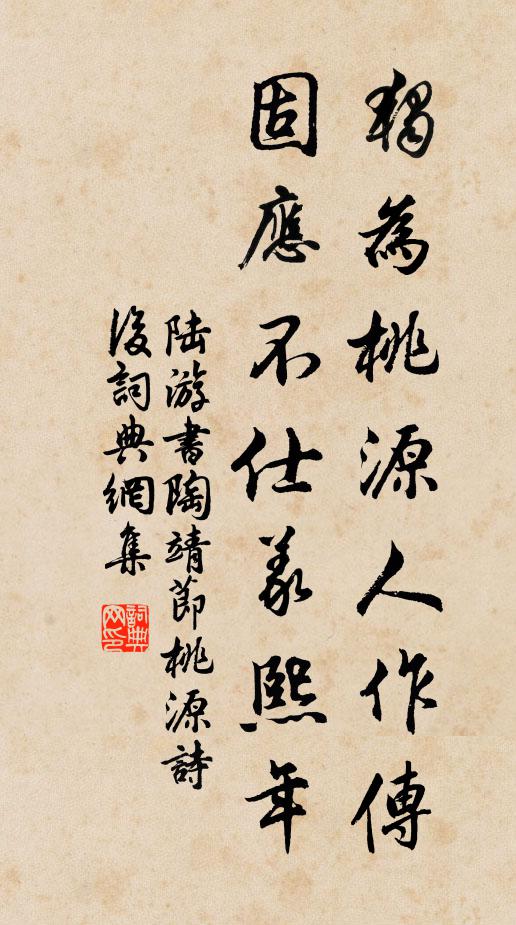 獨為桃源人作傳
固應不仕義熙年
陸游書陶靖節桃源詩
後詞典網集
詞典
网印